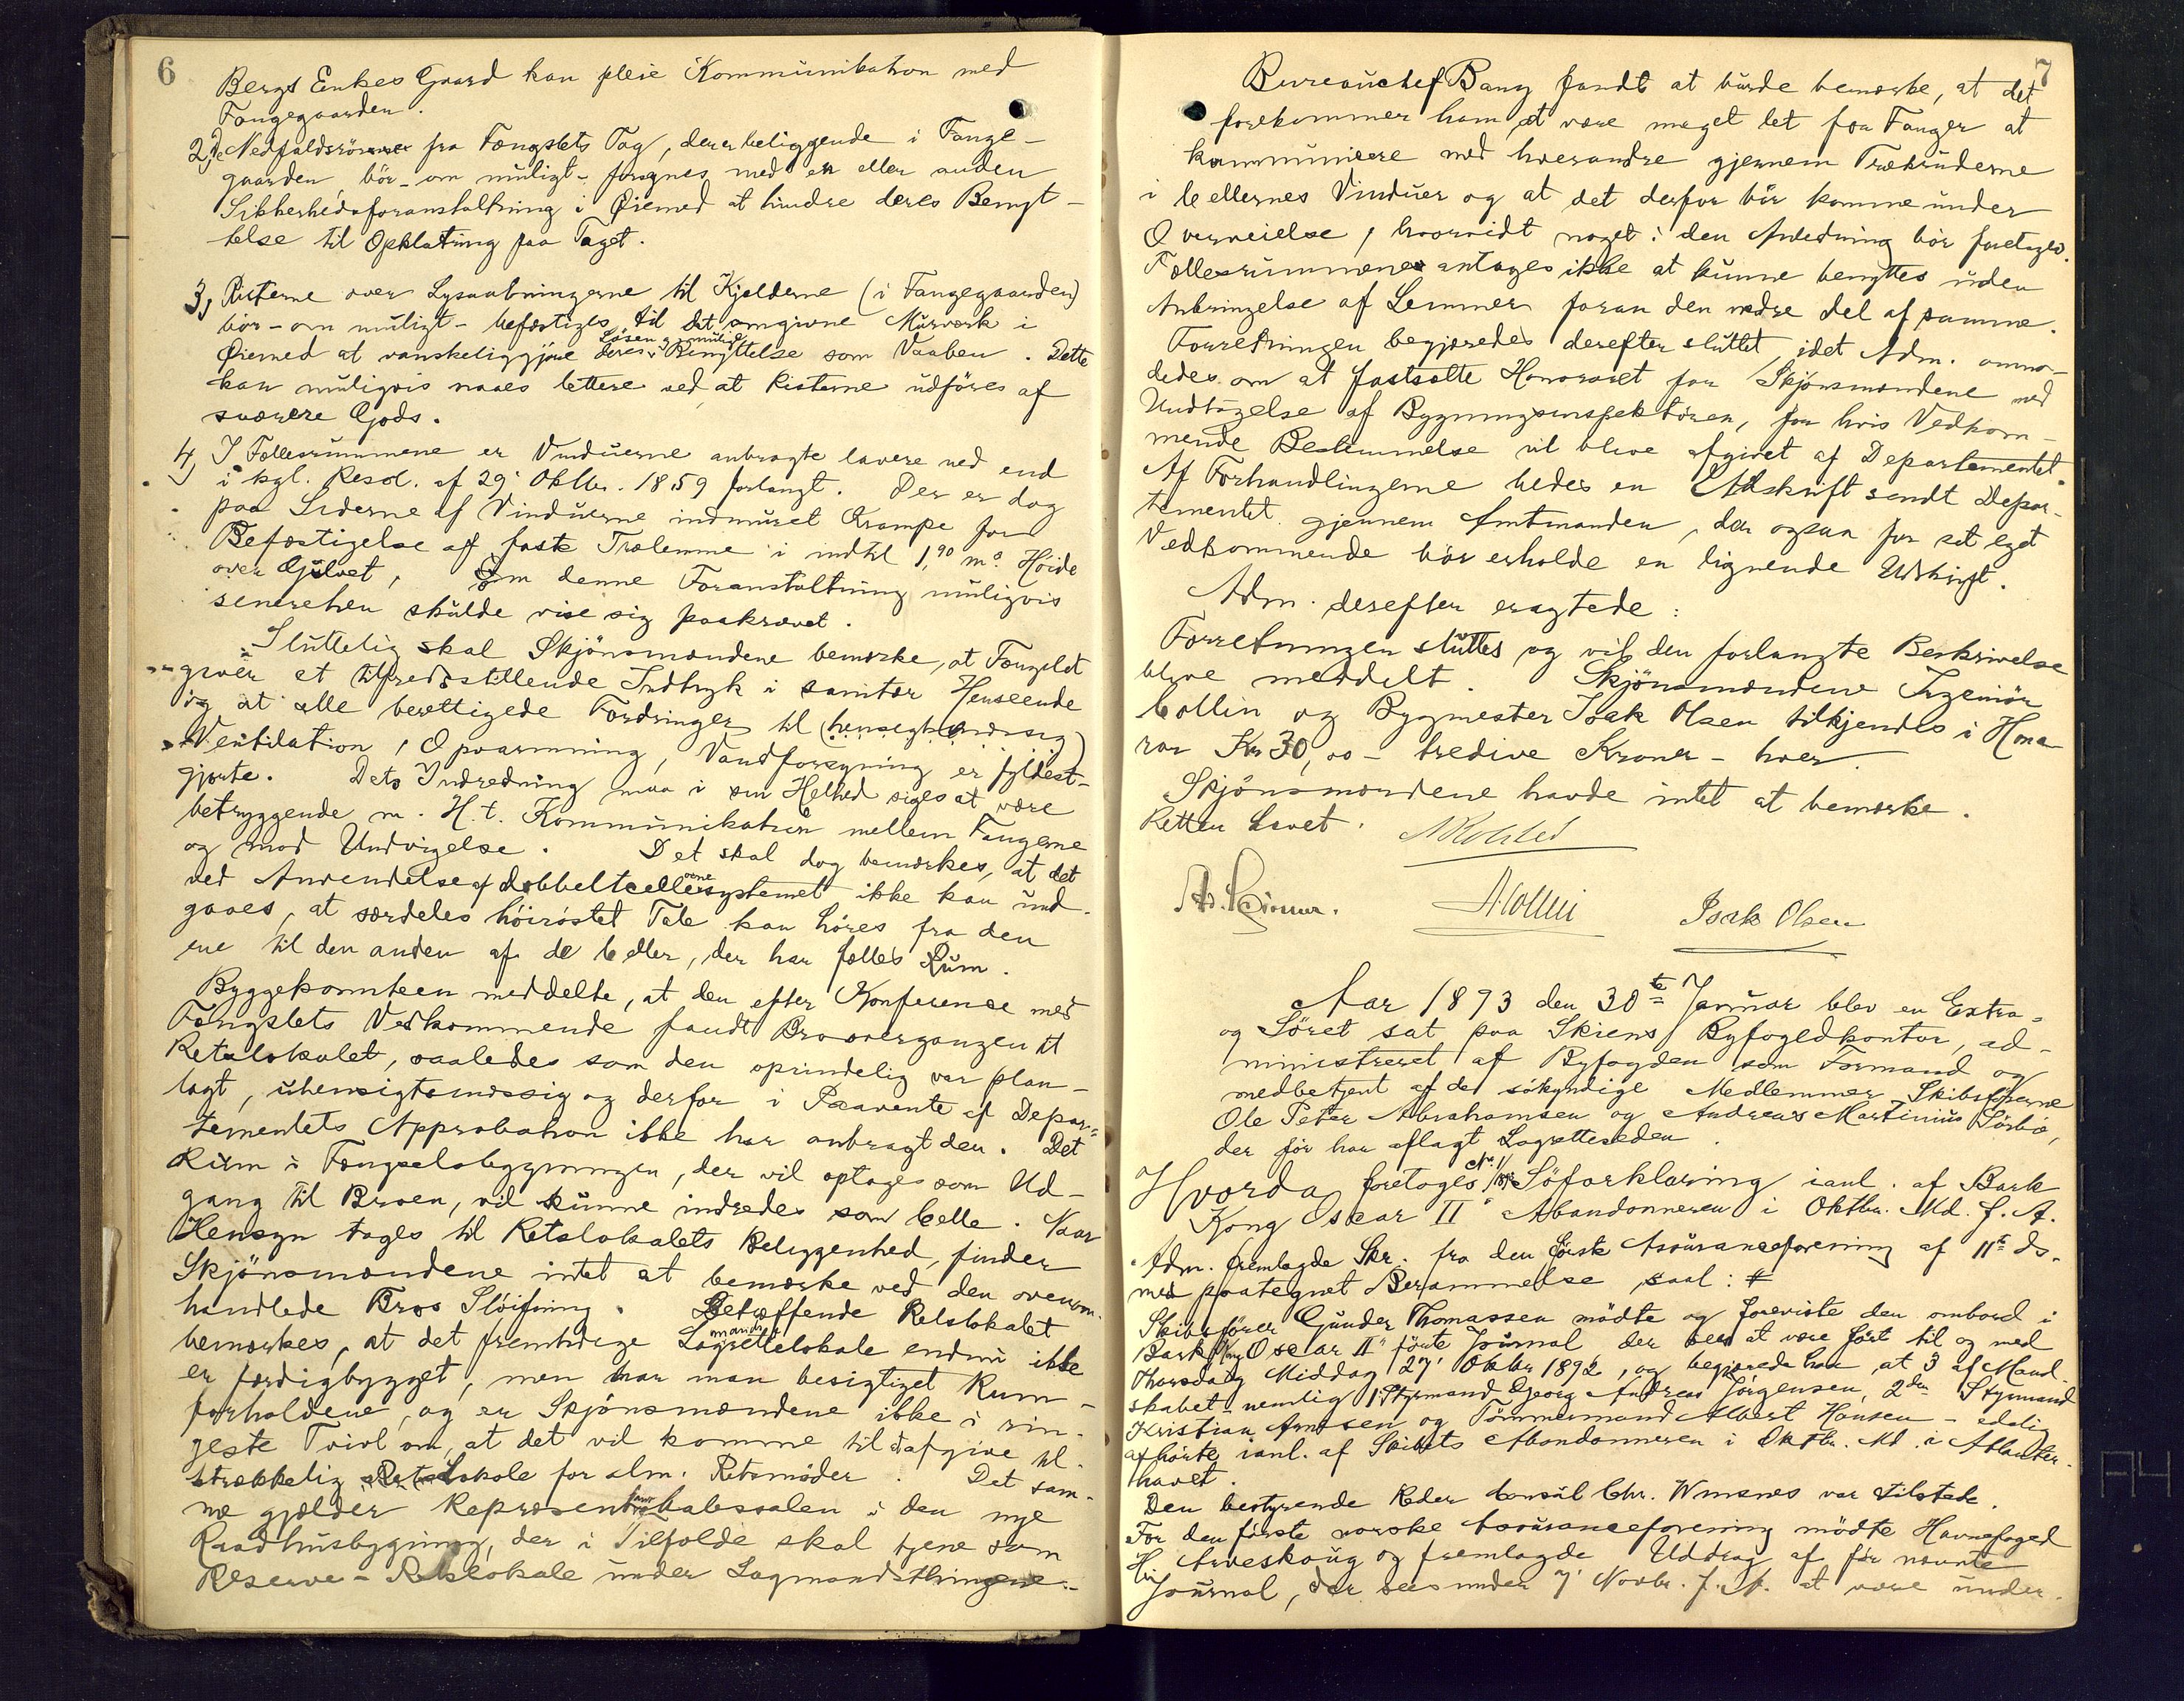 6
Bergs Enkes Gaard kan pleie Kommunikation med
Fangegaarden.
2, De Nedfaldsrör fra Fængslets Tag, der er beliggende i Fange-
gaarden, bör - om muligt - forsynes med en eller anden
Sikkerhedsforanstaltning i Öiemed at hindre deres Benyt-
telse til Opklatring paa Taget.
3, Risterne over Lysaabningerne til Kjelderne (i Fangegaarden)
bör - om muligt - befæstiges til det omgivne Murværk i
Öiemed at vanskeliggjøre deres Løsen og mulige Benyttelse som Vaaben. Dette
kan muligvis naaes lettere ved at Risterne udföres af
sværere Gods.
4, I Fællesrummene er Vinduerne anbragte lavere ned end
i kgl. Resol. af 29' Oktbr. 1859 forlangt. Der er dog
paa Siderne af Vinduerne indmuret Krampe for
Befæstigelse af faste Trælemme i indtil 1,90 m. Höide
over Gulvet, som denne Foranstaltning muligvis
senerehen skulde vise sig paakrævet.
Sluttelig skal Skjönsmændene bemærke, at Fængslet
giver et tilfredsstillende Indtryk i sanitær Henseende
og at alle berettigede Fordringer til (hensigtsmæssig)
Ventilation, Opvarmning, Vandforsyning er fyldest-
gjorte. Dets Indredning maa i sin Helhed siges at være
betryggende m. H. t. Kommunikation mellem Fangerne
og mod Undvigelse. Det skal dog bemærkes, at det
ved Anvendelse af dobbeltcellesystemet ikke kan und-
gaaes, at særdeles höiröstet Tale kan höres fra den
ene til den anden af de Celler, der har fælles Rum.
Byggekomiteen meddelte, at den efter Konference med
Fængslets Vedkommende fandt Broovergangen til
Retslokalet, saaledes som den oprindelig var plan-
lagt, uhensigtsmæssig og derfor i Paavente af Depar-
tementets Approbation ikke har anbragt den. Det
Rum i Fængselsbygningen, der vil optages som Ud-
gang til Broen, vil kunne indredes som Celle. Naar
Hensyn tages til Retslokalets Beliggenhed, finder
Skjönsmændene intet at bemærke ved den ovenom-
handlede Bros Slöifning. Betræffende Retslokalet
bemærkes, at det fremtidige Lagmandsretslokale endnu ikke
er færdigbygget, men har man besigtiget Rum-
forholdene, og er Skjönsmændene ikke i rin-
geste Tvivl om, at det vil komme til at afgive til-
strækkelig Retslokale for alm. Retsmöder. Det sam-
me gjælder Repræsentantskabssalen i den nye
Raadhusbygning, der i Tilfælde skal tjene som
Reserve-Retslokale under Lagmandsthingene.
7
Bureauchef Bang fandt at burde bemærke, at det
forekommer ham at være meget let for Fanger at
kommunicere med hverandre gjennem Trækruderne
i Cellernes Vinduer og at det derfor bör komme under
Overveielse, hvorvidt noget i den Anledning bör foretages.
Fællesrummene antages ikke at kunne benyttes uden
Anbringelse af Lemmer foran den nedre del af samme.
Forretningen begjæredes derefter sluttet idet Adm. anmo-
dedes om at fastsætte Honoraret for Skjönsmændene med
Undtagelse af Bygningsinspektören, for hvis Vedkom-
mende Bestemmelse vil blive afgivet af Departementet.
Af Forhandlingerne bedes en Udskrift sendt Depar-
tementet gjennem Amtmanden, der ogsaa for sit eget
Vedkommende bör erholde en lignende Udskrift.
Adm. derefter eragtede:
Forretningen sluttes og vil den forlangte Beskrivelse
blive meddelt. Skjönsmændene Ingeniör
Collin og Bygmester Isak Olsen tilkjendes i Hono-
rar Kr 30,00 - tredive Kroner - hver.
Skjönsmændene havde intet at bemærke.
Retten hævet.
A Collin Isak Olsen
Aar 1893 den 30te Januar blev en Extra-
og Söret sat paa Skiens Byfogedkontor, ad-
ministreret af Byfogden som Formand og
medbetjent af de sökyndige Medlemmer Skibsförerne
Ole Peter Abrahamsen og Andreas Martinius Sörbö,
der för har aflagt Lagretteseden.
Hvorda foretoges No. 1/1893 Söforklaring ianl. af Bark
Kong Oscar II' Abandonneren i Oktbr. Md. f. A.
Adm. fremlagde Skr. fra den förste Assuranceforening af 11te ds.
med paategnet Berammelse saal: #
Skibsförer Gunder Thomassen mödte og foreviste den ombord i
Bark Kong Oscar II" förte Journal, der sees at være fört til og med
Thorsdag Middag 27' Oktbr 1892, og begjærede han at 3 af Mand-
skabet - nemlig 1. Styrmand Georg Andreas Jörgensen, 2den Styrmand
Kristian Arntsen og Tömmermand Albert Hansen - edelig
afhörte ianl. af Skibets Abandonneren i Oktbr. Md. i Atlanter-
havet.
Den bestyrende Reder Consul Chr. Winsnes var tilstede.
For den förste norske Assuranceforening mödte Havnefoged
H. Arveskoug og fremlagde Uddrag af för nævnte
Journal, der sees under 7' Novbr. f. A. at være under-